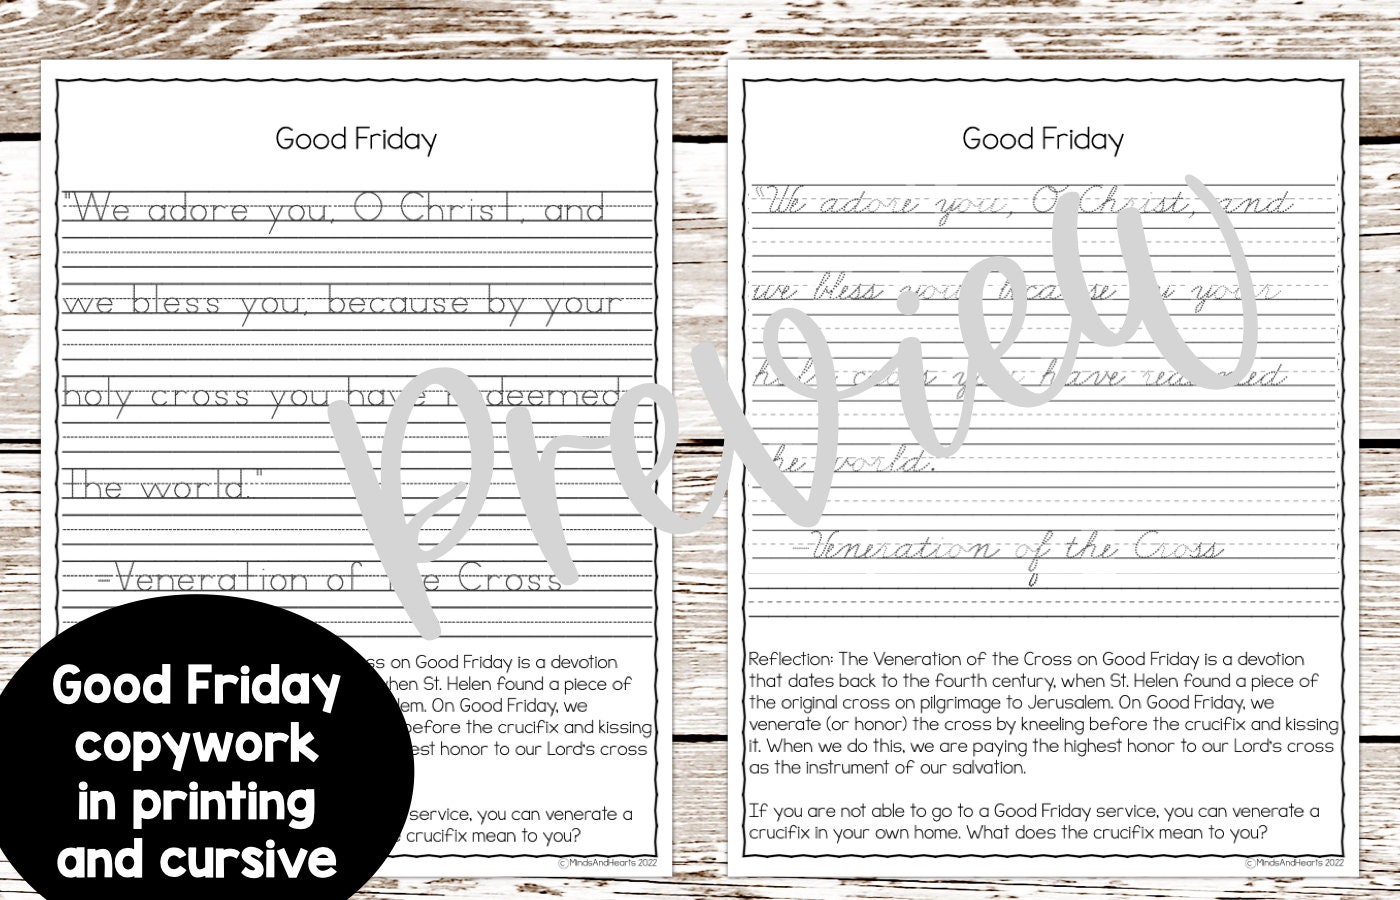 Good Friday
"We adore you, O Christ, and
we bless you, because by your
holy cross you have redeemed
the world."
-Veneration of the Cross
ss on Good Friday is a devotion
when St. Helen found a piece of
lem. On Good Friday, we
before the crucifix and kissing
est honor to our Lord's cross
service, you can venerate a
crucifix mean to you?
©MindsAndHearts 2022
Good Friday
"We adore you, O Christ, and
we bless you, because by your
holy cross you have redeemed
the world.
-Veneration of the Cross
Reflection: The Veneration of the Cross on Good Friday is a devotion
that dates back to the fourth century, when St. Helen found a piece of
the original cross on pilgrimage to Jerusalem. On Good Friday, we
venerate (or honor) the cross by kneeling before the crucifix and kissing
it. When we do this, we are paying the highest honor to our Lord's cross
as the instrument of our salvation.
If you are not able to go to a Good Friday service, you can venerate a
crucifix in your own home. What does the crucifix mean to you?
©MindsAndHearts 2022
preview
Good Friday
copywork
in printing
and cursive